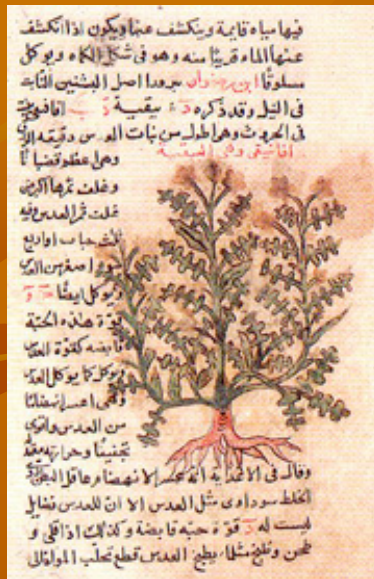 فيها مياه قايمة وينكشف عنها ويكون اذا انكشف
عنها الماء قريبًا منه وهو فى شكل الكاه ويوكل
مسلوقًا ابن رضوان اصل البشنين النابت
فى النيل وقد ذكره
فى الحروث وهى اطول من نبات العدس دقيقة
وهى
وغلف ثمرها اكبر من
غلف ثمر العدس فيه
ثلث حبات او اربع
سود اصغر من العدس
ويوكل ايضًا
قوة هذه الحبة
قابضة كقوة العدس
ويوكل كما يوكل العدس
وهى اعسر انهضامًا
من العدس واقوى
تجفيفًا وحرارته
وقال فى الاغذية انه عسر الانهضام عاقل البطن
الخلط سوداوى مثل العدس الا ان للعدس فضايل
ليست له قوة حبه قابضة وكذلك اذا قلى و
طحن وطبخ مثلما يطبخ العدس قطع تحلب المواد الى